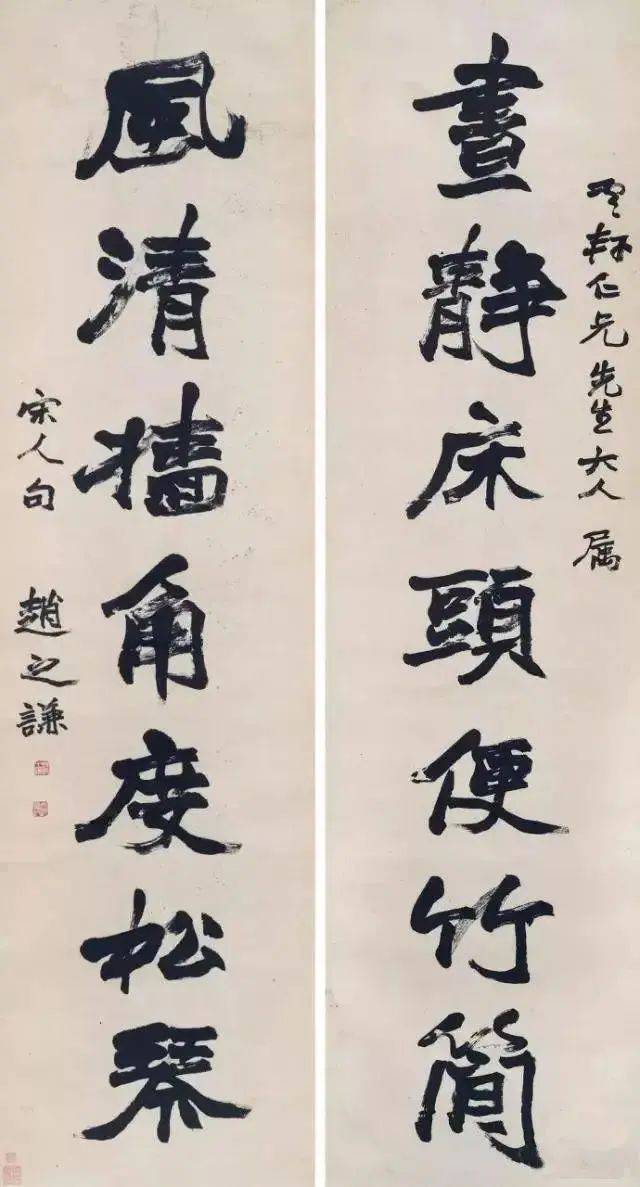 軒仁兄先生大人 屬
晝靜床頭便竹簡
風清牆角度松琴
宋人句 趙之謙